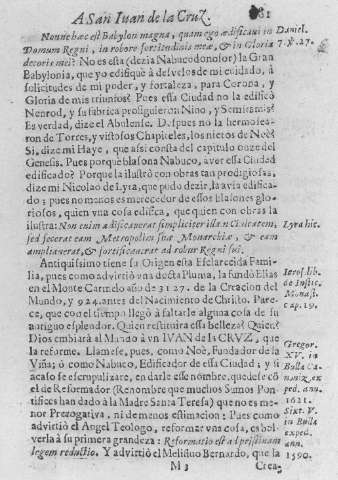 A San Iuan de la Cruz. 81
Nonne hæc est Babylon magna, quam ego ædificaui in
Domum Regni, in robore fortitudinis meæ, & in Gloria
decoris mei? No es esta (dezia Nabucodonosor) la Gran
Babylonia, que yo edifiquè à desvelos de mi cuidado, à
solicitudes de mi poder, y fortaleza, para Corona, y
Gloria de mis triunfos? Pues essa Ciudad no la edificò
Nenrod, y su fabrica prosiguieron Nino, y Semiramis?
Es verdad, dize el Abulense. Despues no la hermosearon
de Torres, y vistosos Chapiteles, los nietos de Noè?
Si, dize mi Haye, que assi consta del capitulo onze del
Genesis. Pues porquè blasona Nabuco, aver essa Ciudad
edificado? Porque la ilustrò con obras tan prodigiosas,
dize mi Nicolao de Lyra, que pudo dezir, la avia edificado
; pues no menos es merecedor de essos blasones gloriosos,
quien vna cosa edifica, que quien con obras la
ilustra: Non enim ædificauerat simpliciter illam Ciuitatem,
sed fecerat eam Metropolim suæ Monarchiæ, & eam
ampliauerat, & fortificauerat ad robur Regni sui.
Antiquissimo tiene su Origen esta Esclarecida Familia,
pues como advirtiò vna docta Pluma, la fundò Elias
en el Monte Carmelo año de 3127. de la Creacion del
Mundo, y 924. antes del Nacimiento de Christo. Parece,
que con el tiempo llegò à faltarle alguna cosa de su
antiguo esplendor. Quien restituira essa belleza? Quien?
Dios embiarà al Mundo à vn IVAN de la CRVZ, que
la reforme. Llamese, pues, como Noè, Fundador de la
Viña; ò como Nabuco, Edificador de essa Ciudad; y si
acaso se escrupulizare, en darle esse nombre, quedese cõ
el de Reformador (Renombre que muchos Sumos Pontifices
han dado à la Madre Santa Teresa) que no es menor
Prerogativa, ni de menos estimacion; Pues como
advirtiò el Angel Teologo, reformar vna cosa, es bolverla
à su primera grandeza: Reformatio est ad pristinam
legem reductio. Y advirtiò el Melifluo Bernardo, que la
M 3 Crea-
Daniel.
7. V. 27.
Lyra hic.
Ieros. lib.
de Instit.
Monast.
cap. 19.
Gregor.
XV. in
Bulla Canoniz,
exped.
ann.
1621.
Sixt. V.
in Bulla
exped.
ann.
1590.